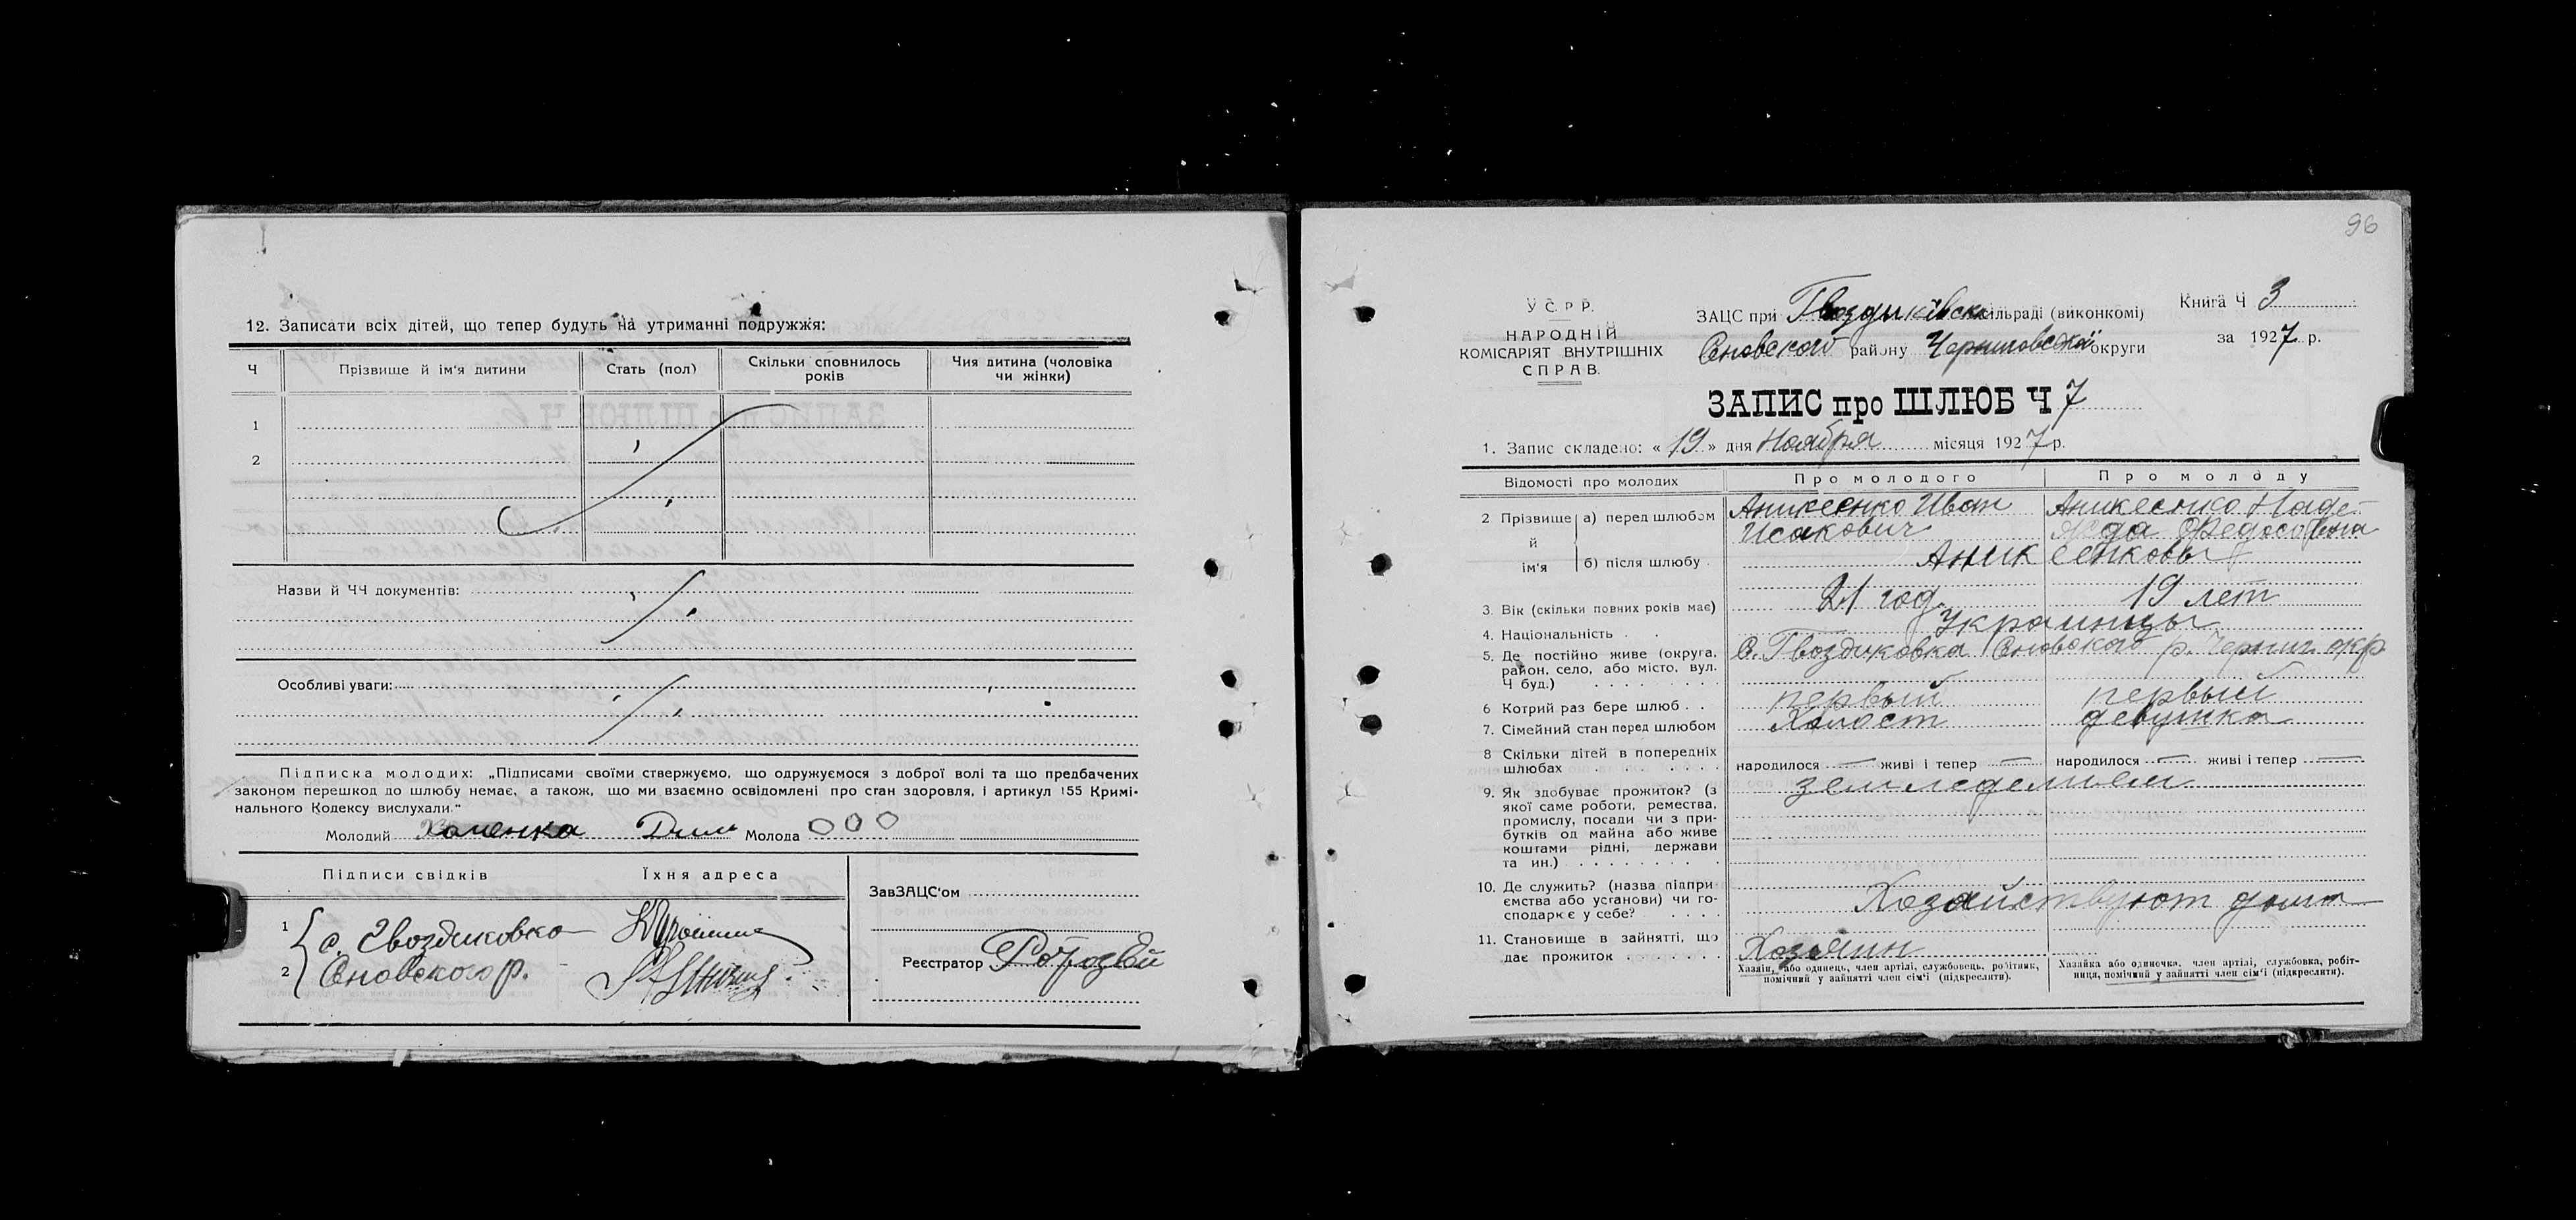 12. Записати всіх дітей, що тепер будуть на утриманні подружжя:
Ч Прізвище й ім'я дитини Стать (пол) Скільки сповнилось років Чия дитина (чоловіка чи жінки)
1
2
Назви й ЧЧ документів:
Особливі уваги:
Підписка молодих: „Підписами своїми стверджуємо, що одружуємося з доброї волі та що предбачених
законом перешкод до шлюбу немає, а також, що ми взаємно освідомлені про стан здоровля, і артикул 155 Кримі-
нального Кодексу вислухали."
Молодий Хоменка Дми Молода 000
Підписи свідків Їхня адреса
1 с. Гвоздиковка
2 Сновского р.
ЗавЗАЦС'ом
Реєстратор
96
У.С.Р.Р.
НАРОДНІЙ
КОМІСАРІЯТ ВНУТРІШНІХ
СПРАВ.
ЗАЦС при Гвоздиківск сільраді (виконкомі)
Сновского району Черниговской округи
Книга Ч 3
за 1927 р.
ЗАПИС про ШЛЮБ Ч 7
1. Запис складено: « 19 » дня Ноября місяця 1927 р.
Відомості про молодих Про молодого Про молоду
2 Прізвище й ім'я а) перед шлюбом Аникеенко Иван Аникеенко Наде-
Исакович жда Федосовна
б) після шлюбу Аникеенковы
3. Вік (скільки повних років має) 21 год 19 лет
4. Національність Украинцы
5. Де постійно живе (округа, С. Гвоздиковка Сновского р. Черниг. окр
район, село, або місто, вул.
Ч буд.)
6 Котрий раз бере шлюб первый первый
7. Сімейний стан перед шлюбом Холост девушка
8 Скільки дітей в попередніх
шлюбах народилося — живі і тепер — народилося — живі і тепер —
9. Як здобуває прожиток? (з земледелием
якої саме роботи, ремества,
промислу, посади чи з при-
бутків од майна або живе
коштами рідні, держави
та ин.)
10. Де служить? (назва підпри-
ємства або установи) чи го- Хозяйствуют дома
сподарює у себе?
11. Становище в зайнятті, що Хозяин
дає прожиток
Хазяїн, або одинець, член артілі, службовець, робітник,
помічний у зайнятті член сім'ї (підкреслити).
Хазяйка або одиночка, член артілі, службовка, робіт-
ниця, помічний у зайнятті член сім'ї (підкреслити).